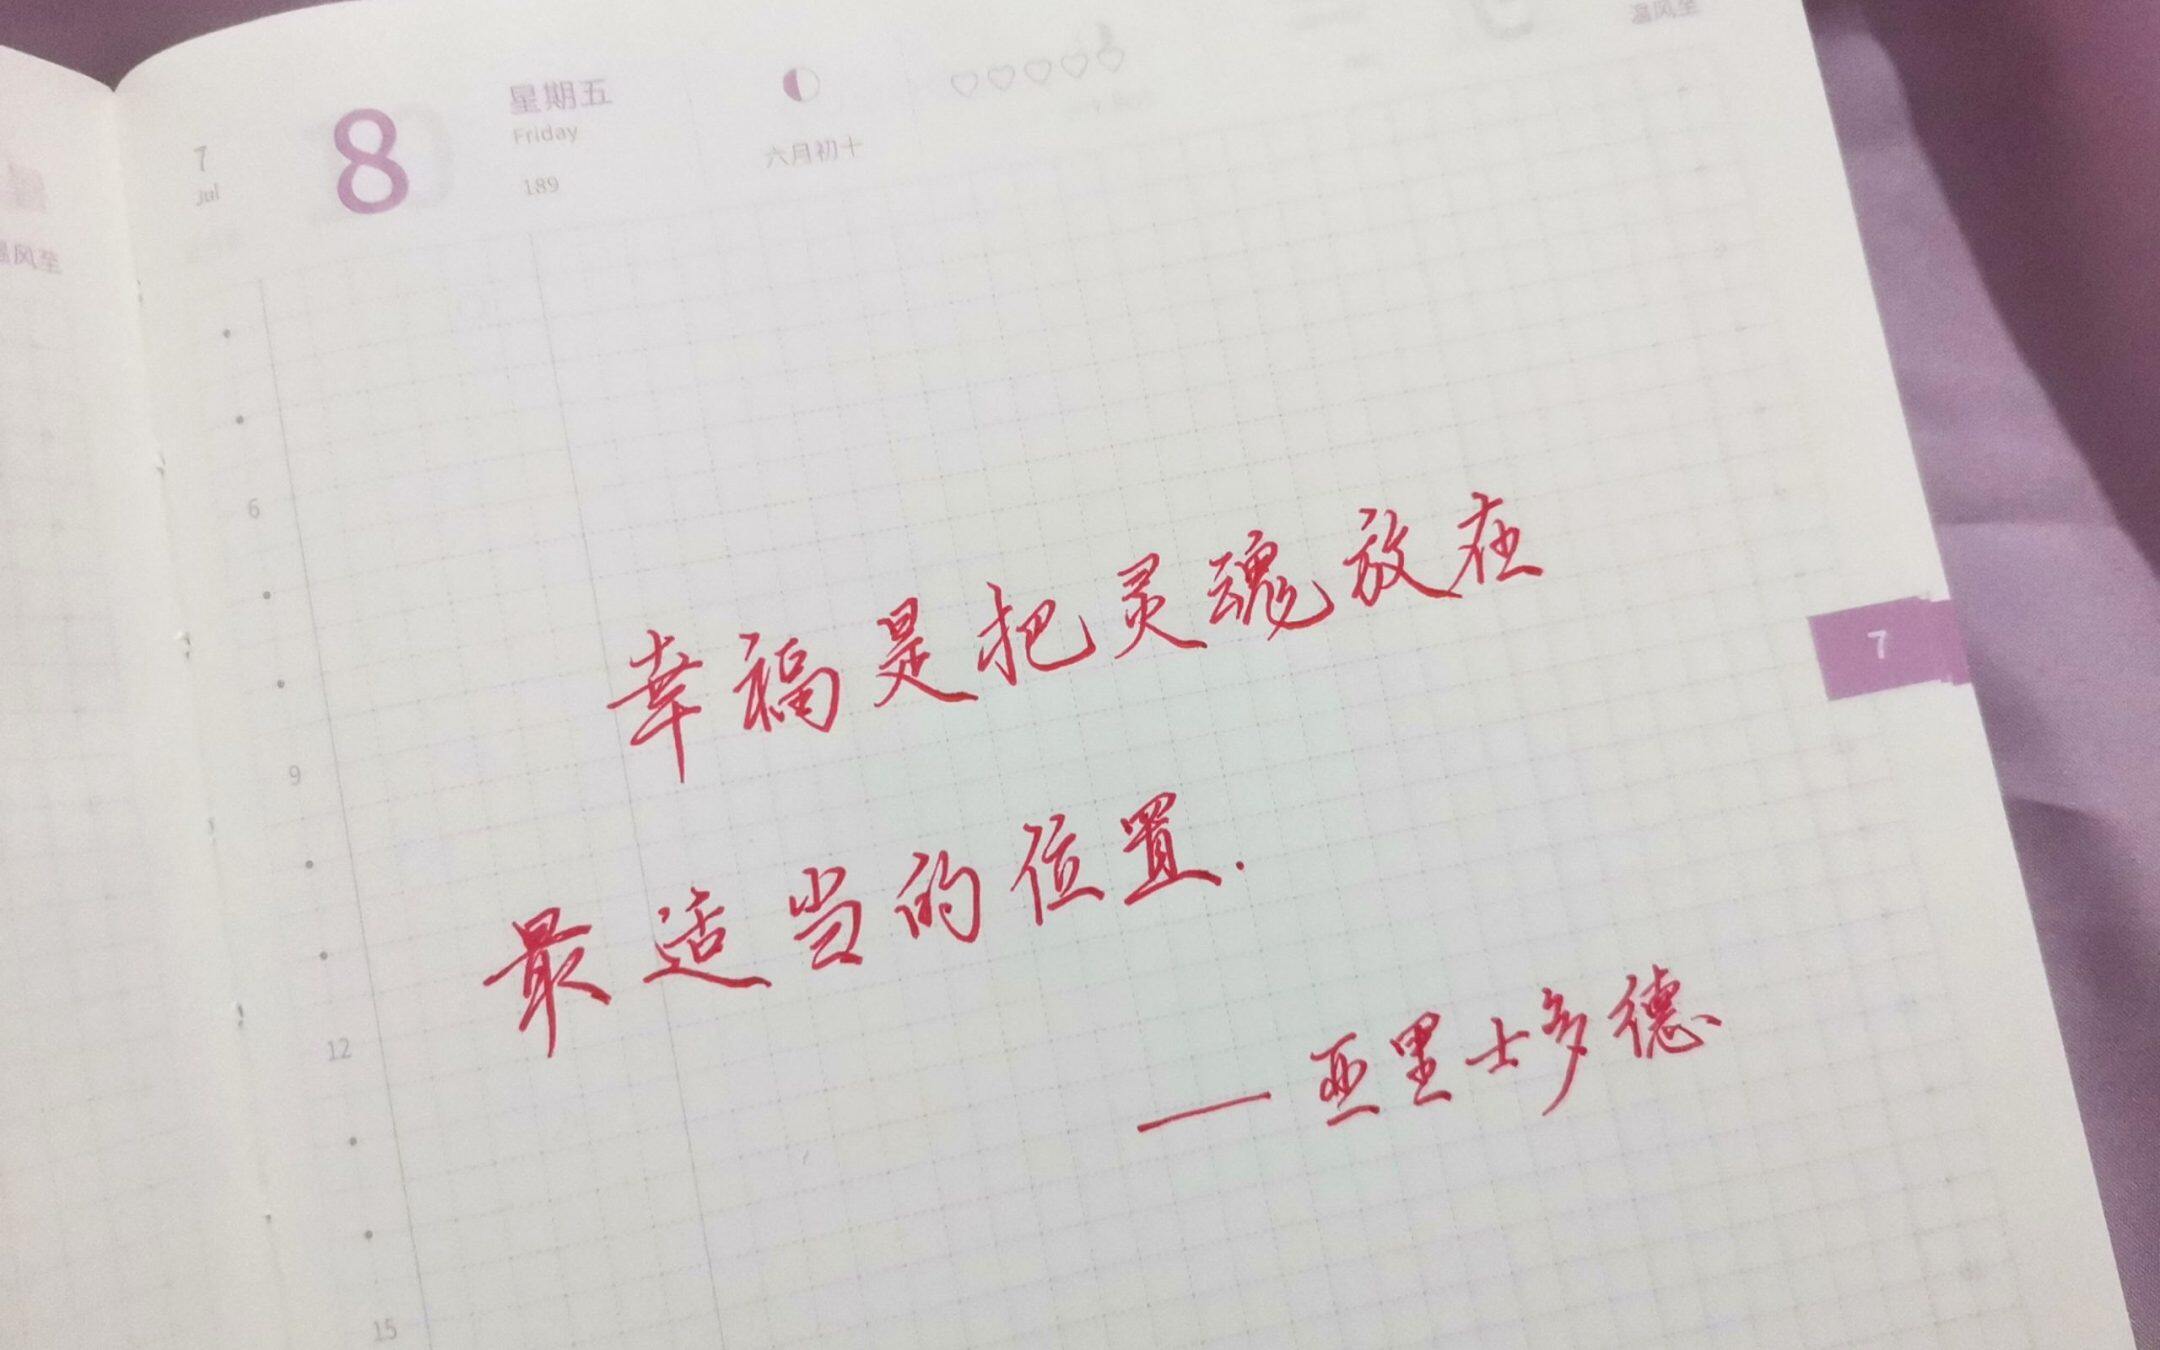 温风至
7
Jul
8
星期五
Friday
189
六月初十
温风至
6
9
12
15
7
幸福是把灵魂放在
最适当的位置.
——亚里士多德